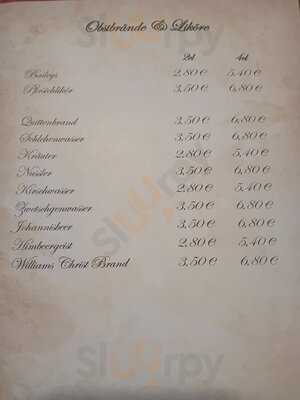 Obstbrände & Liköre
2cl 4cl
Baileys 2,80 € 5,40 €
Pfirsichlikör 3,50 € 6,80 €
Quittenbrand 3,50 € 6,80 €
Schlehenwasser 3,50 € 6,80 €
Kräuter 2,80 € 5,40 €
Nussler 3,50 € 6,80 €
Kirschwasser 2,80 € 5,40 €
Zwetschgenwasser 3,50 € 6,80 €
Johannisbeer 3,50 € 6,80 €
Himbeergeist 2,80 € 5,40 €
Williams Christ Brand 3,50 € 6,80 €
sluurpy
sluurpy